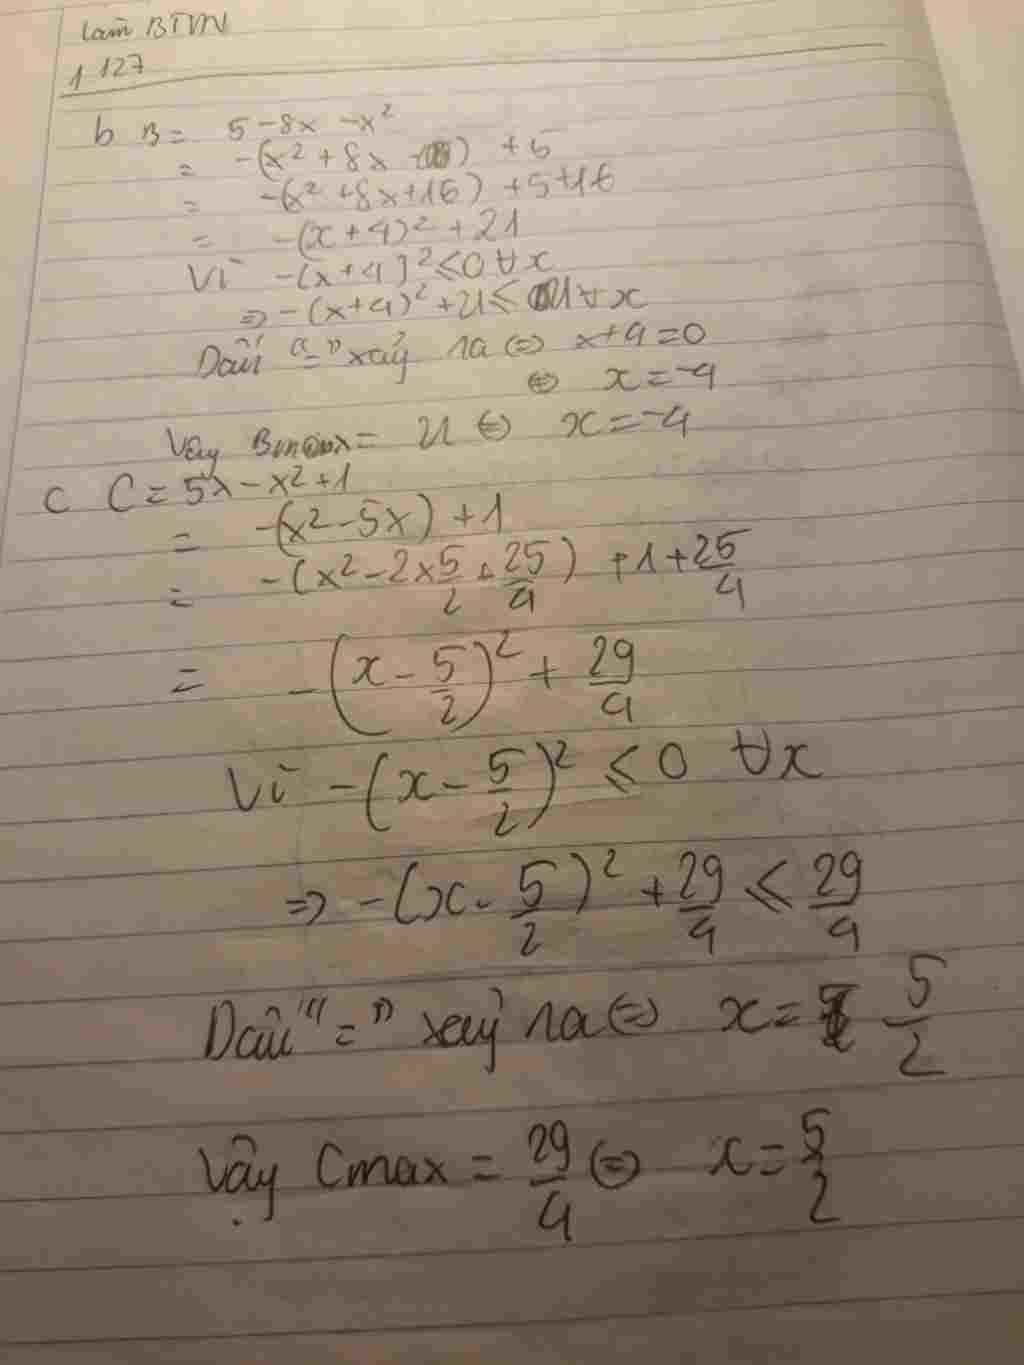 làm BTVN
1 127
b B = 5 - 8x - x²
= -(x² + 8x ) + 5
= -(x² + 8x + 16) + 5 + 16
= -(x + 4)² + 21
Vì -(x + 4)² ≤ 0 ∀x
=> -(x+4)² + 21 ≤ 21 ∀x
Dấu "=" xảy ra <=> x + 4 = 0
<=> x = -4
Vậy Bmax = 21 <=> x = -4
c C = 5x - x² + 1
= -(x² - 5x) + 1
= -(x² - 2x 5/2 + 25/4) + 1 + 25/4
= -(x - 5/2)² + 29/4
Vì -(x - 5/2)² ≤ 0 ∀x
=> -(x - 5/2)² + 29/4 ≤ 29/4
Dấu "=" xảy ra <=> x = 5/2
Vậy Cmax = 29/4 <=> x = 5/2